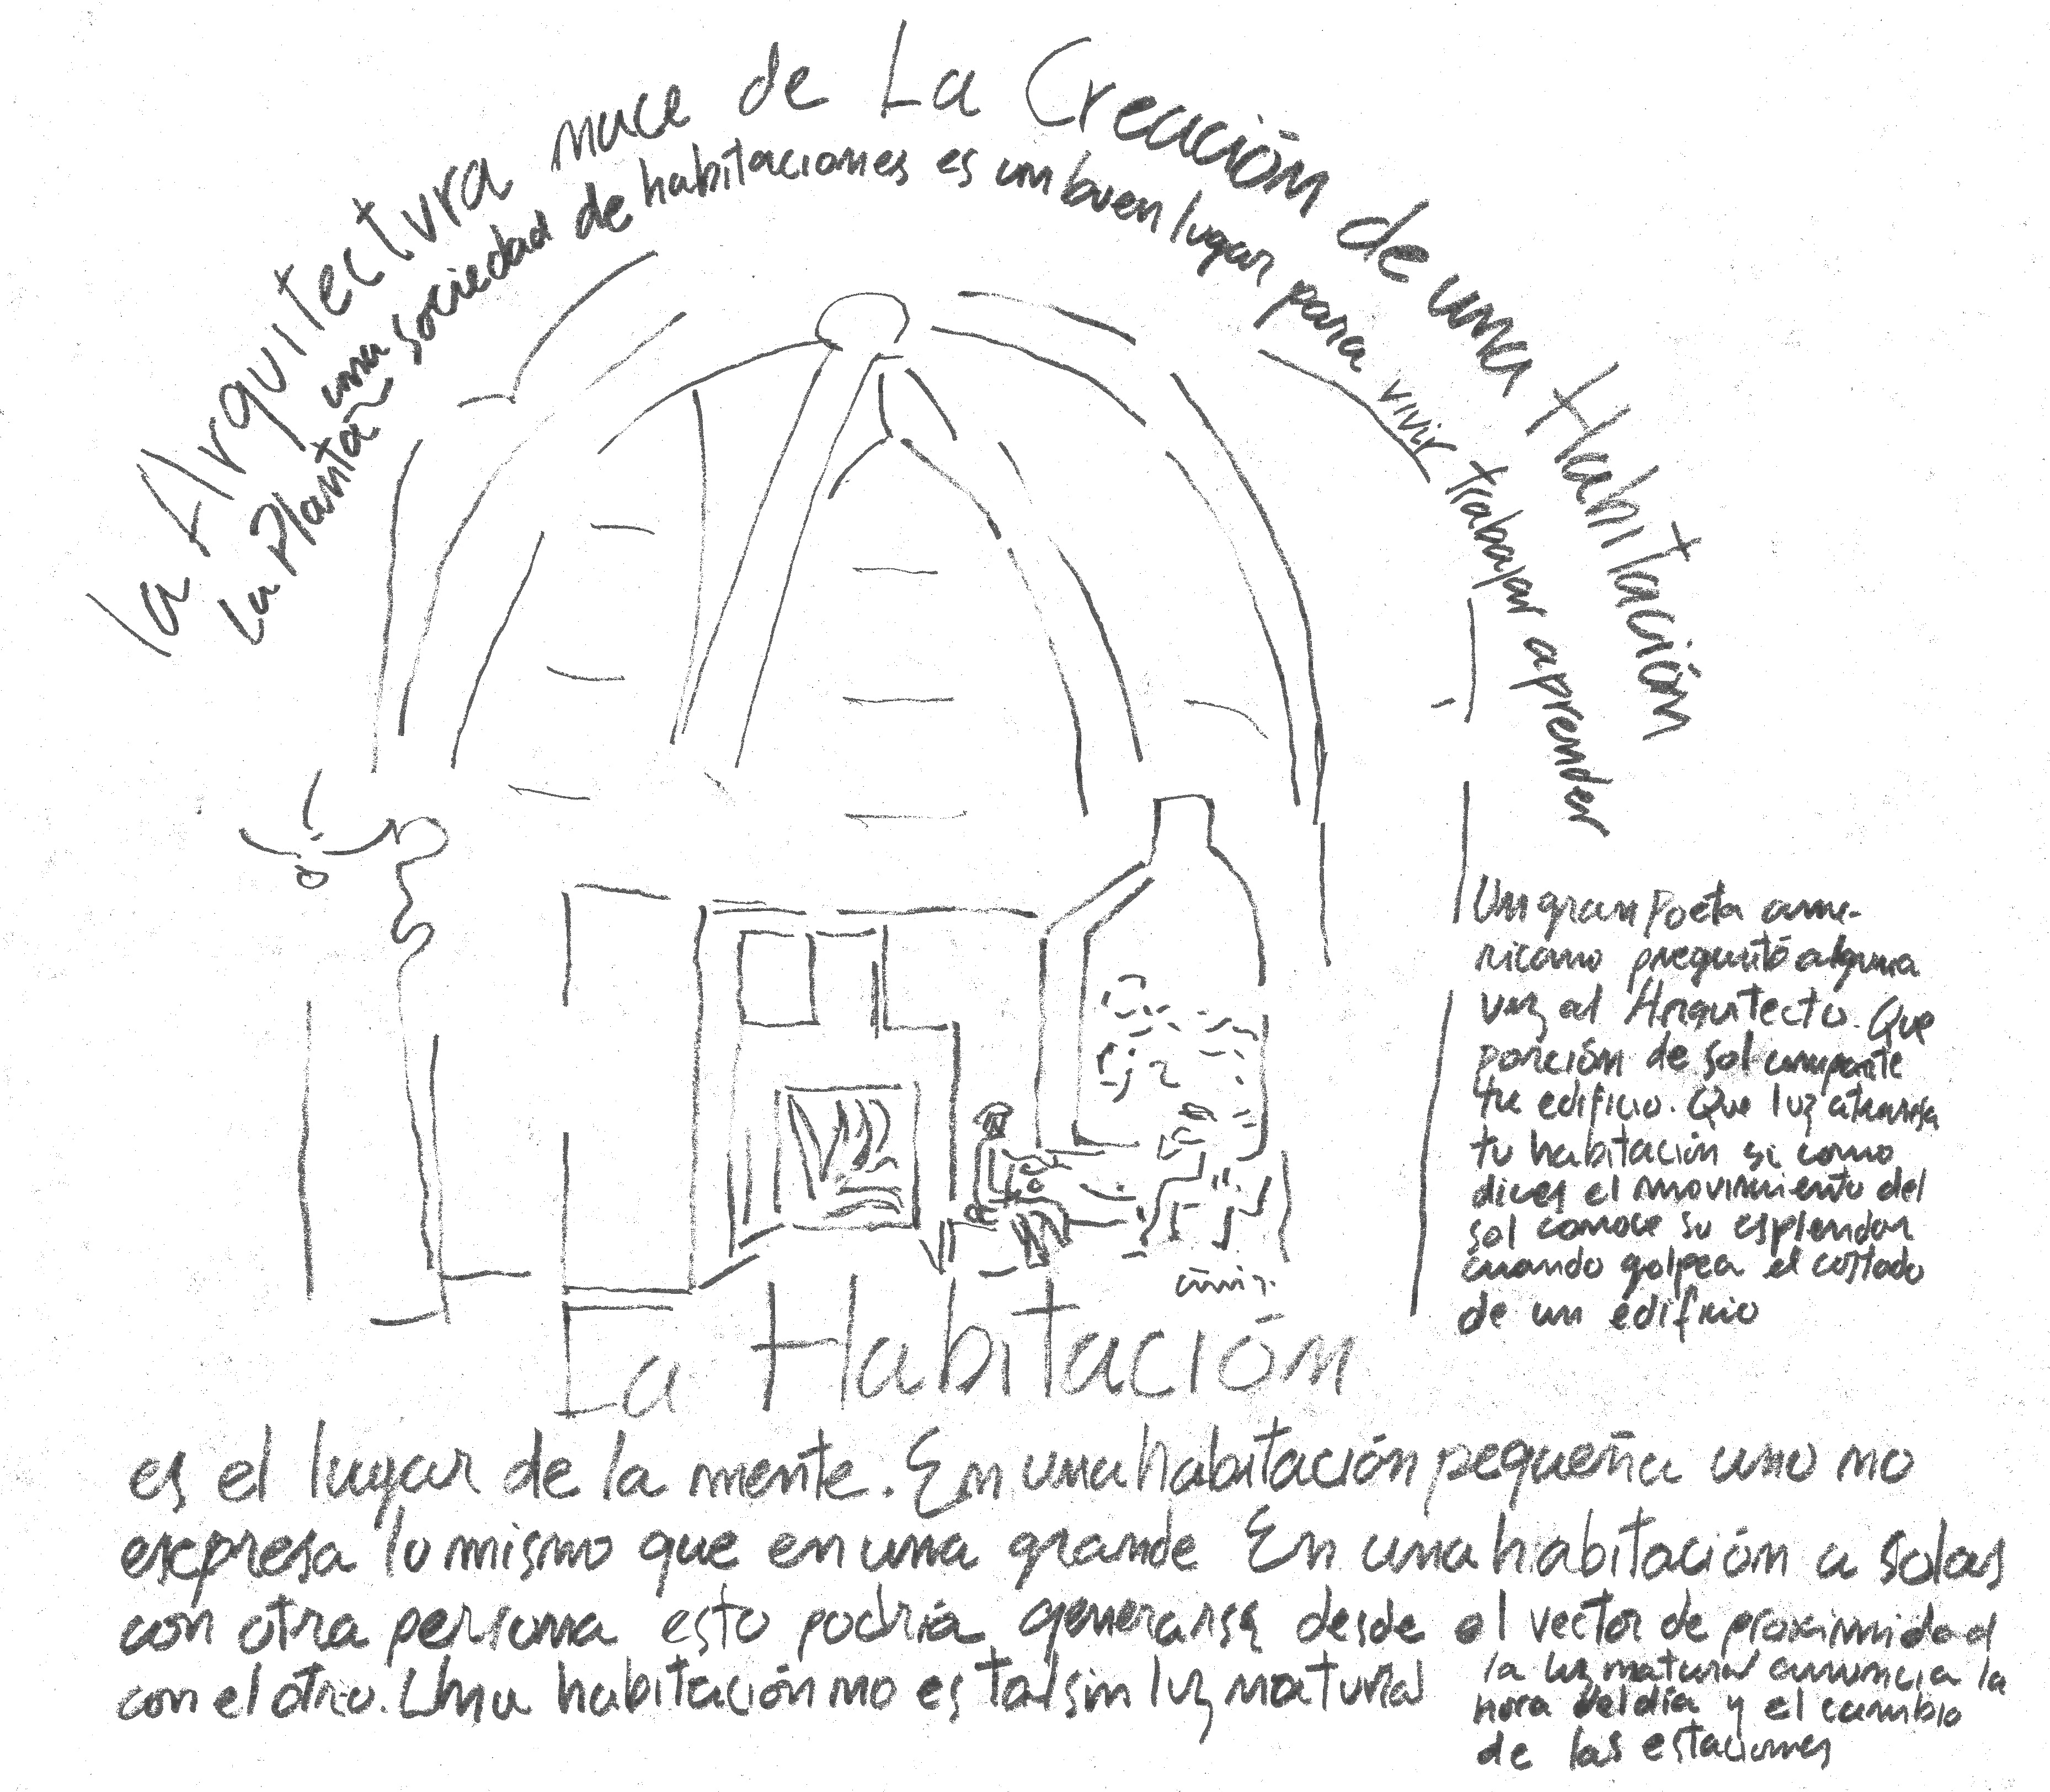 la Arquitectura nace de La Creación de una Habitación
La Planta una sociedad de habitaciones es un buen lugar para vivir trabajar aprender
Un gran Poeta ame-
ricano preguntó alguna
vez al Arquitecto. Que
porción de sol comparte
tu edificio. Que luz atraviesa
tu habitación si como
dices el movimiento del
sol conoce su esplendor
cuando golpea el costado
de un edificio
La Habitación
es el lugar de la mente. En una habitación pequeña uno no
expresa lo mismo que en una grande En una habitación a solas
con otra persona esto podría generarse desde el vector de proximidad
con el otro. Una habitación no es tal sin luz natural
la luz natural anuncia la
hora del día y el cambio
de las estaciones